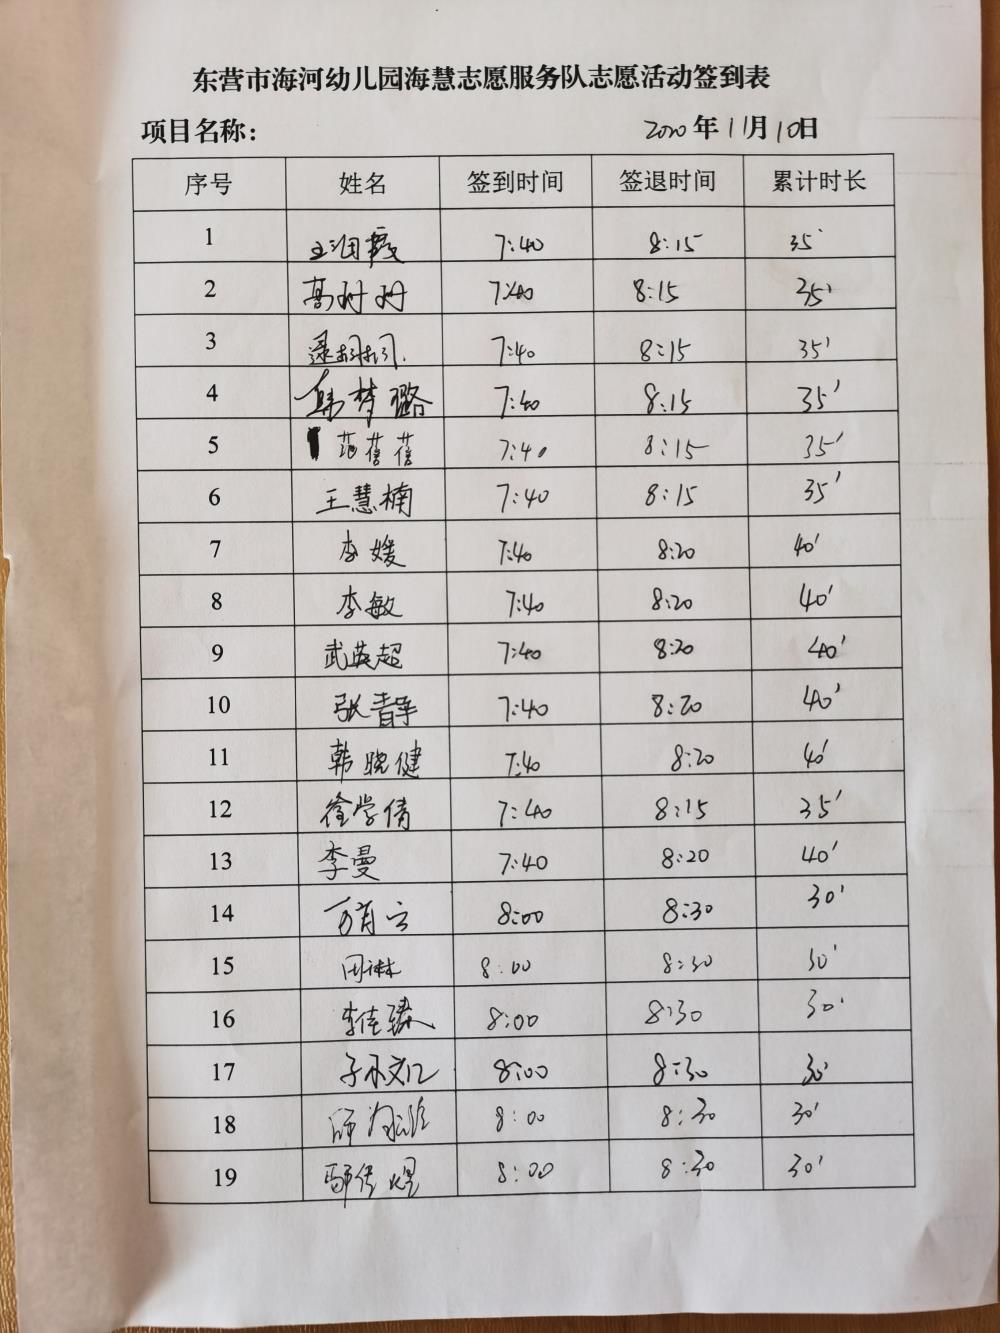 东营市海河幼儿园海慧志愿服务队志愿活动签到表
项目名称： 2020年11月10日
序号 姓名 签到时间 签退时间 累计时长
1 王润霞 7:40 8:15 35'
2 高姗姗 7:40 8:15 35'
3 7:40 8:15 35'
4 韩梦璐 7:40 8:15 35'
5 范蓓蓓 7:40 8:15 35'
6 王慧楠 7:40 8:15 35'
7 李媛 7:40 8:20 40'
8 李敏 7:40 8:20 40'
9 武英超 7:40 8:20 40'
10 张静 7:40 8:20 40'
11 韩晓健 7:40 8:20 40'
12 徐学倩 7:40 8:15 35'
13 李曼 7:40 8:20 40'
14 8:00 8:30 30'
15 田琳 8:00 8:30 30'
16 李佳臻 8:00 8:30 30'
17 8:00 8:30 30'
18 8:00 8:30 30'
19 8:00 8:30 30'